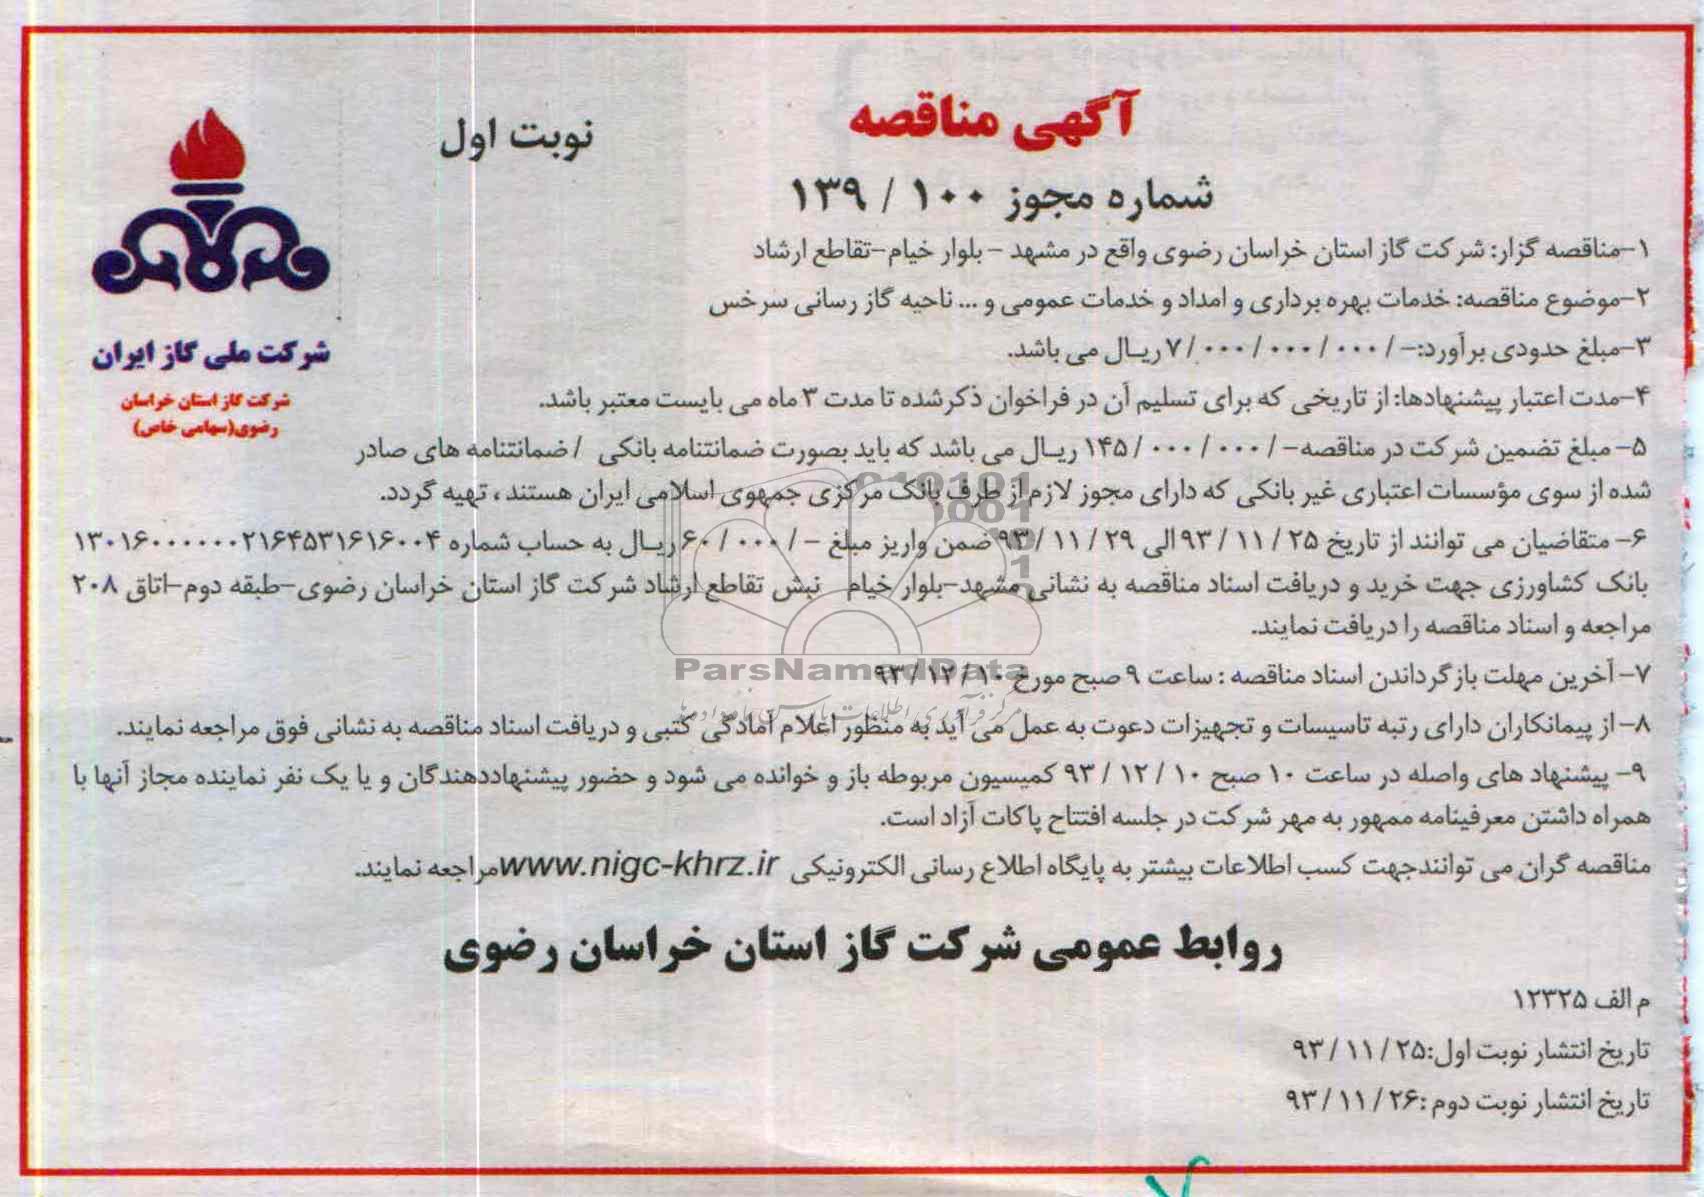 آگهی مناقصه
نوبت اول
شماره مجوز ۱۰۰ / ۱۳۹
شرکت ملی گاز ایران
شرکت گاز استان خراسان
رضوی(سهامی خاص)
۱-مناقصه گزار: شرکت گاز استان خراسان رضوی واقع در مشهد - بلوار خیام-تقاطع ارشاد
۲-موضوع مناقصه: خدمات بهره برداری و امداد و خدمات عمومی و ... ناحیه گاز رسانی سرخس
۳-مبلغ حدودی برآورد:-/۷/۰۰۰/۰۰۰/۰۰۰ ریال می باشد.
۴-مدت اعتبار پیشنهادها: از تاریخی که برای تسلیم آن در فراخوان ذکرشده تا مدت ۳ ماه می بایست معتبر باشد.
۵- مبلغ تضمین شرکت در مناقصه-/۱۴۵/۰۰۰/۰۰۰ ریال می باشد که باید بصورت ضمانتنامه بانکی /ضمانتنامه های صادر
شده از سوی مؤسسات اعتباری غیر بانکی که دارای مجوز لازم از طرف بانک مرکزی جمهوی اسلامی ایران هستند ، تهیه گردد.
۶- متقاضیان می توانند از تاریخ ۲۵ / ۱۱ / ۹۳ الی ۲۹ / ۱۱ / ۹۳ ضمن واریز مبلغ -/۶۰/۰۰۰ ریال به حساب شماره ۱۳۰۱۶۰۰۰۰۰۰۲۱۶۴۵۳۱۶۱۶۰۰۴
بانک کشاورزی جهت خرید و دریافت اسناد مناقصه به نشانی مشهد-بلوار خیام نبش تقاطع ارشاد شرکت گاز استان خراسان رضوی-طبقه دوم-اتاق ۲۰۸
مراجعه و اسناد مناقصه را دریافت نمایند.
۷- آخرین مهلت بازگرداندن اسناد مناقصه : ساعت ۹ صبح مورخ ۱۰ / ۱۲ / ۹۳
۸- از پیمانکاران دارای رتبه تاسیسات و تجهیزات دعوت به عمل می آید به منظور اعلام آمادگی کتبی و دریافت اسناد مناقصه به نشانی فوق مراجعه نمایند.
۹- پیشنهاد های واصله در ساعت ۱۰ صبح ۱۰ / ۱۲ / ۹۳ کمیسیون مربوطه باز و خوانده می شود و حضور پیشنهاددهندگان و یا یک نفر نماینده مجاز آنها با
همراه داشتن معرفینامه ممهور به مهر شرکت در جلسه افتتاح پاکات آزاد است.
مناقصه گران می توانندجهت کسب اطلاعات بیشتر به پایگاه اطلاع رسانی الکترونیکی www.nigc-khrz.ir مراجعه نمایند.
روابط عمومی شرکت گاز استان خراسان رضوی
م الف ۱۲۳۲۵
تاریخ انتشار نوبت اول:۲۵ / ۱۱ / ۹۳
تاریخ انتشار نوبت دوم :۲۶ / ۱۱ / ۹۳
ParsNamadData